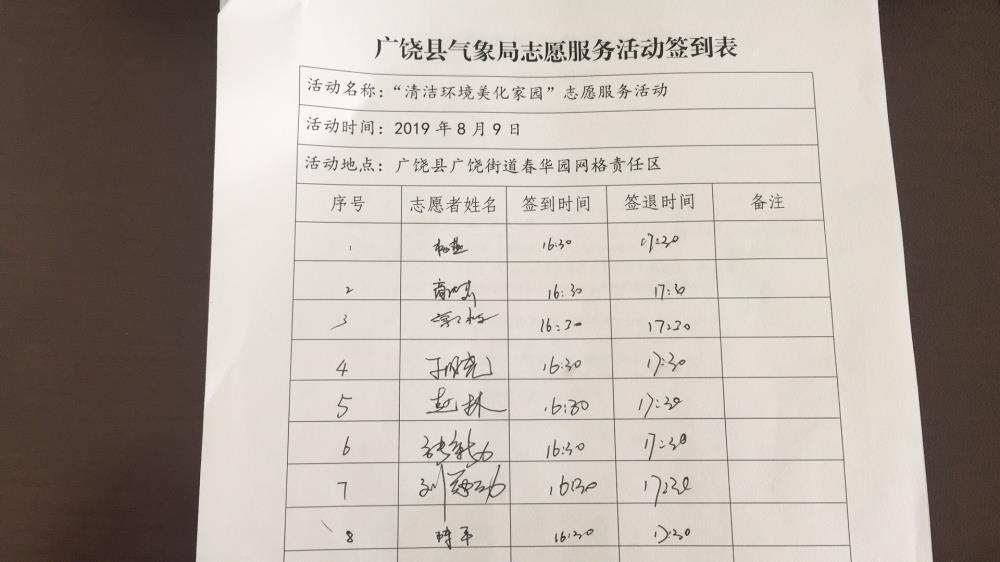 广饶县气象局志愿服务活动签到表
活动名称：“清洁环境美化家园”志愿服务活动
活动时间：2019 年 8 月 9 日
活动地点：广饶县广饶街道春华园网格责任区
序号 志愿者姓名 签到时间 签退时间 备注
1 16:30 17:30
2 16:30 17:30
3 16:30 17:30
4 16:30 17:30
5 赵林 16:30 17:30
6 16:30 17:30
7 16:30 17:30
8 16:30 17:30